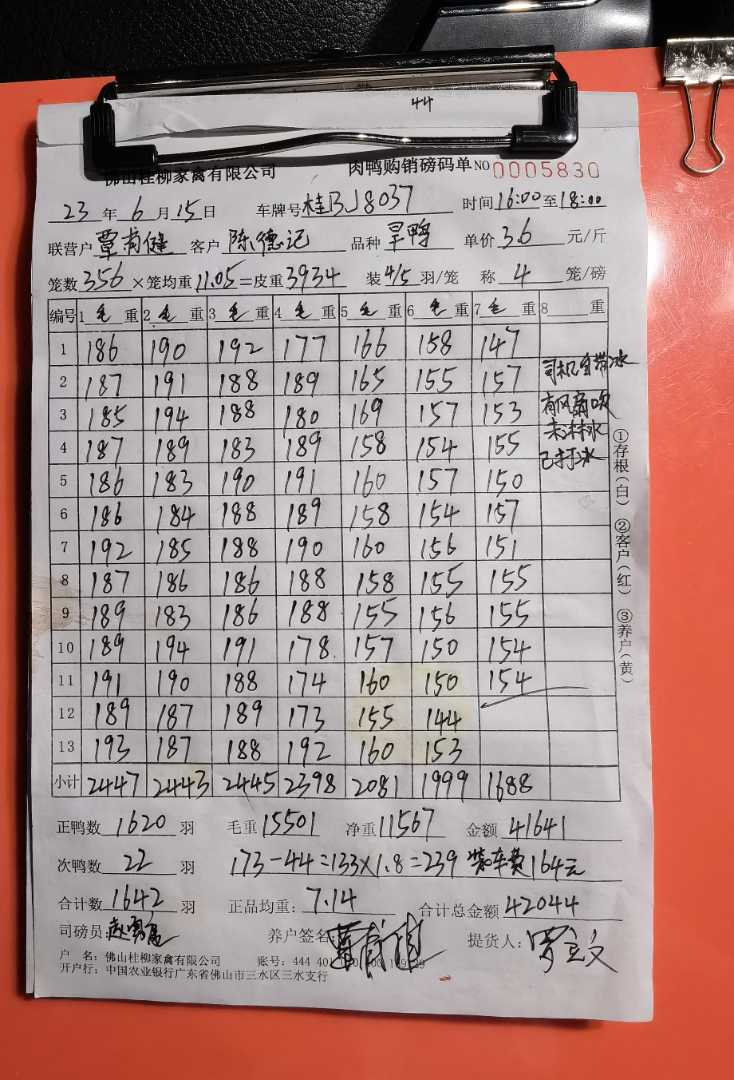 44
佛山桂柳家禽有限公司 肉鸭购销磅码单 NO 0005830
23年6月15日 车牌号桂BJ8037 时间16:00至18:00
联营户 覃 健 客户 陈德记 品种 旱鸭 单价 3.6 元/斤
笼数 356 ×笼均重 11.05 =皮重 3934 装 4/5 羽/笼 称 4 笼/磅
编号 1毛重 2毛重 3毛重 4毛重 5毛重 6毛重 7毛重 8 重
1 186 190 192 177 166 158 147
2 187 191 188 189 165 155 157 司机自带冰
3 185 194 188 180 169 157 153 有风扇吹
4 187 189 183 189 158 154 155 未淋水
5 186 183 190 191 160 157 150 已打冰
6 186 184 188 189 158 154 157
7 192 185 188 190 160 156 151
8 187 186 186 188 158 155 155
9 189 183 186 188 155 156 155
10 189 194 191 178 157 150 154
11 191 190 188 174 160 150 154
12 189 187 189 173 155 144
13 193 187 188 192 160 153
小计 2447 2443 2445 2398 2081 1999 1688
①存根(白) ②客户(红) ③养户(黄)
正鸭数 1620 羽 毛重 15501 净重 11567 金额 41641
次鸭数 22 羽 173-44=133×1.8=239 装车费164元
合计数 1642 羽 正品均重: 7.14 合计总金额 42044
司磅员: 养户签名: 提货人:
户 名: 佛山桂柳家禽有限公司 账号: 444 401
开户行: 中国农业银行广东省佛山市三水区三水支行